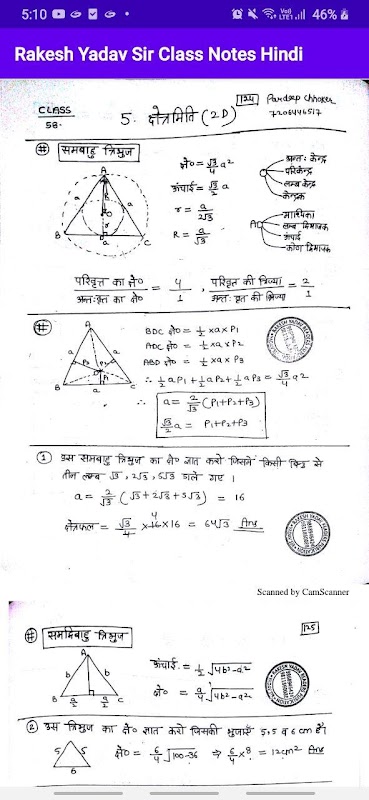 5:10 46%
Rakesh Yadav Sir Class Notes Hindi
CLASS 58.
5. क्षेत्रमिति (2D)
124 Pardeep Chhoker
7206446517
# समबाहु त्रिभुज
क्षे० = √3/4 a²
ऊंचाई = √3/2 a
r = a/2√3
R = a/√3
अन्तः केन्द्र
परिकेन्द्र
लम्ब केन्द्र
केन्द्रक
माध्यिका
लम्ब द्विभाजक
ऊंचाई
कोण द्विभाजक
A
B
C
a
a
a
R
r
O
D
परिवृत्त का क्षे० / अन्तः वृत का क्षे० = 4/1 , परिवृत की त्रिज्या / अन्तः वृत की त्रिज्या = 2/1
#
A
B
C
a
a
a
P3
P2
P1
BDC क्षे० = 1/2 × a × P1
ADC क्षे० = 1/2 × a × P2
ABD क्षे० = 1/2 × a × P3
∴ 1/2 aP1 + 1/2 aP2 + 1/2 aP3 = √3/4 a²
∴ a = 2/√3 (P1+P2+P3)
√3/2 a = P1+P2+P3
① उस समबाहु त्रिभुज का क्षे० ज्ञात करो जिसमें किसी बिन्दु से
तीन लम्ब √3, 2√3, 5√3 डाले गए ।
a = 2/√3 (√3 + 2√3 + 5√3) = 16
क्षेत्रफल = √3/4 × 16 × 16 = 64√3 Ans
4
Scanned by CamScanner
# समद्विबाहु त्रिभुज
125
A
b
b
B
a/2
a/2
C
ऊंचाई = 1/2 √4b²-a²
क्षे० = a/4 √4b²-a²
② उस त्रिभुज का क्षे० ज्ञात करो जिसकी भुजाएँ 5,5 व 6 cm है।
5
5
6
क्षे० = 6/4 √100-36 ⇒ 6/4 × 8 = 12cm² Ans